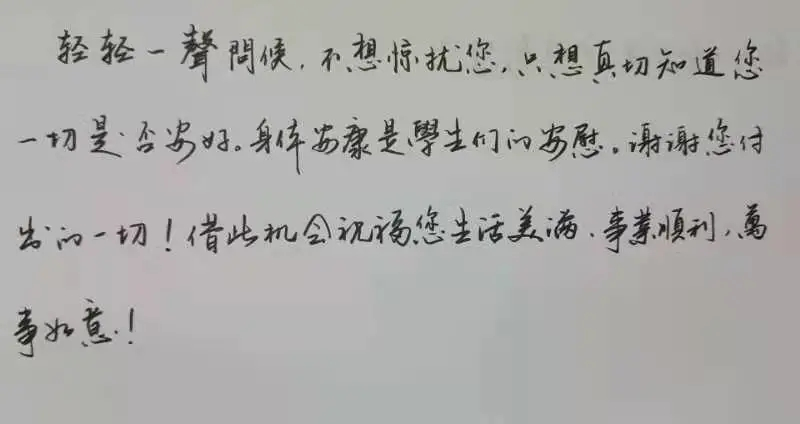 轻轻一聲問候，不想惊扰您，只想真切知道您
一切是否安好。身体安康是學生们的安慰。谢谢您付
出的一切！借此机会祝福您生活美满、事業順利，萬
事如意！